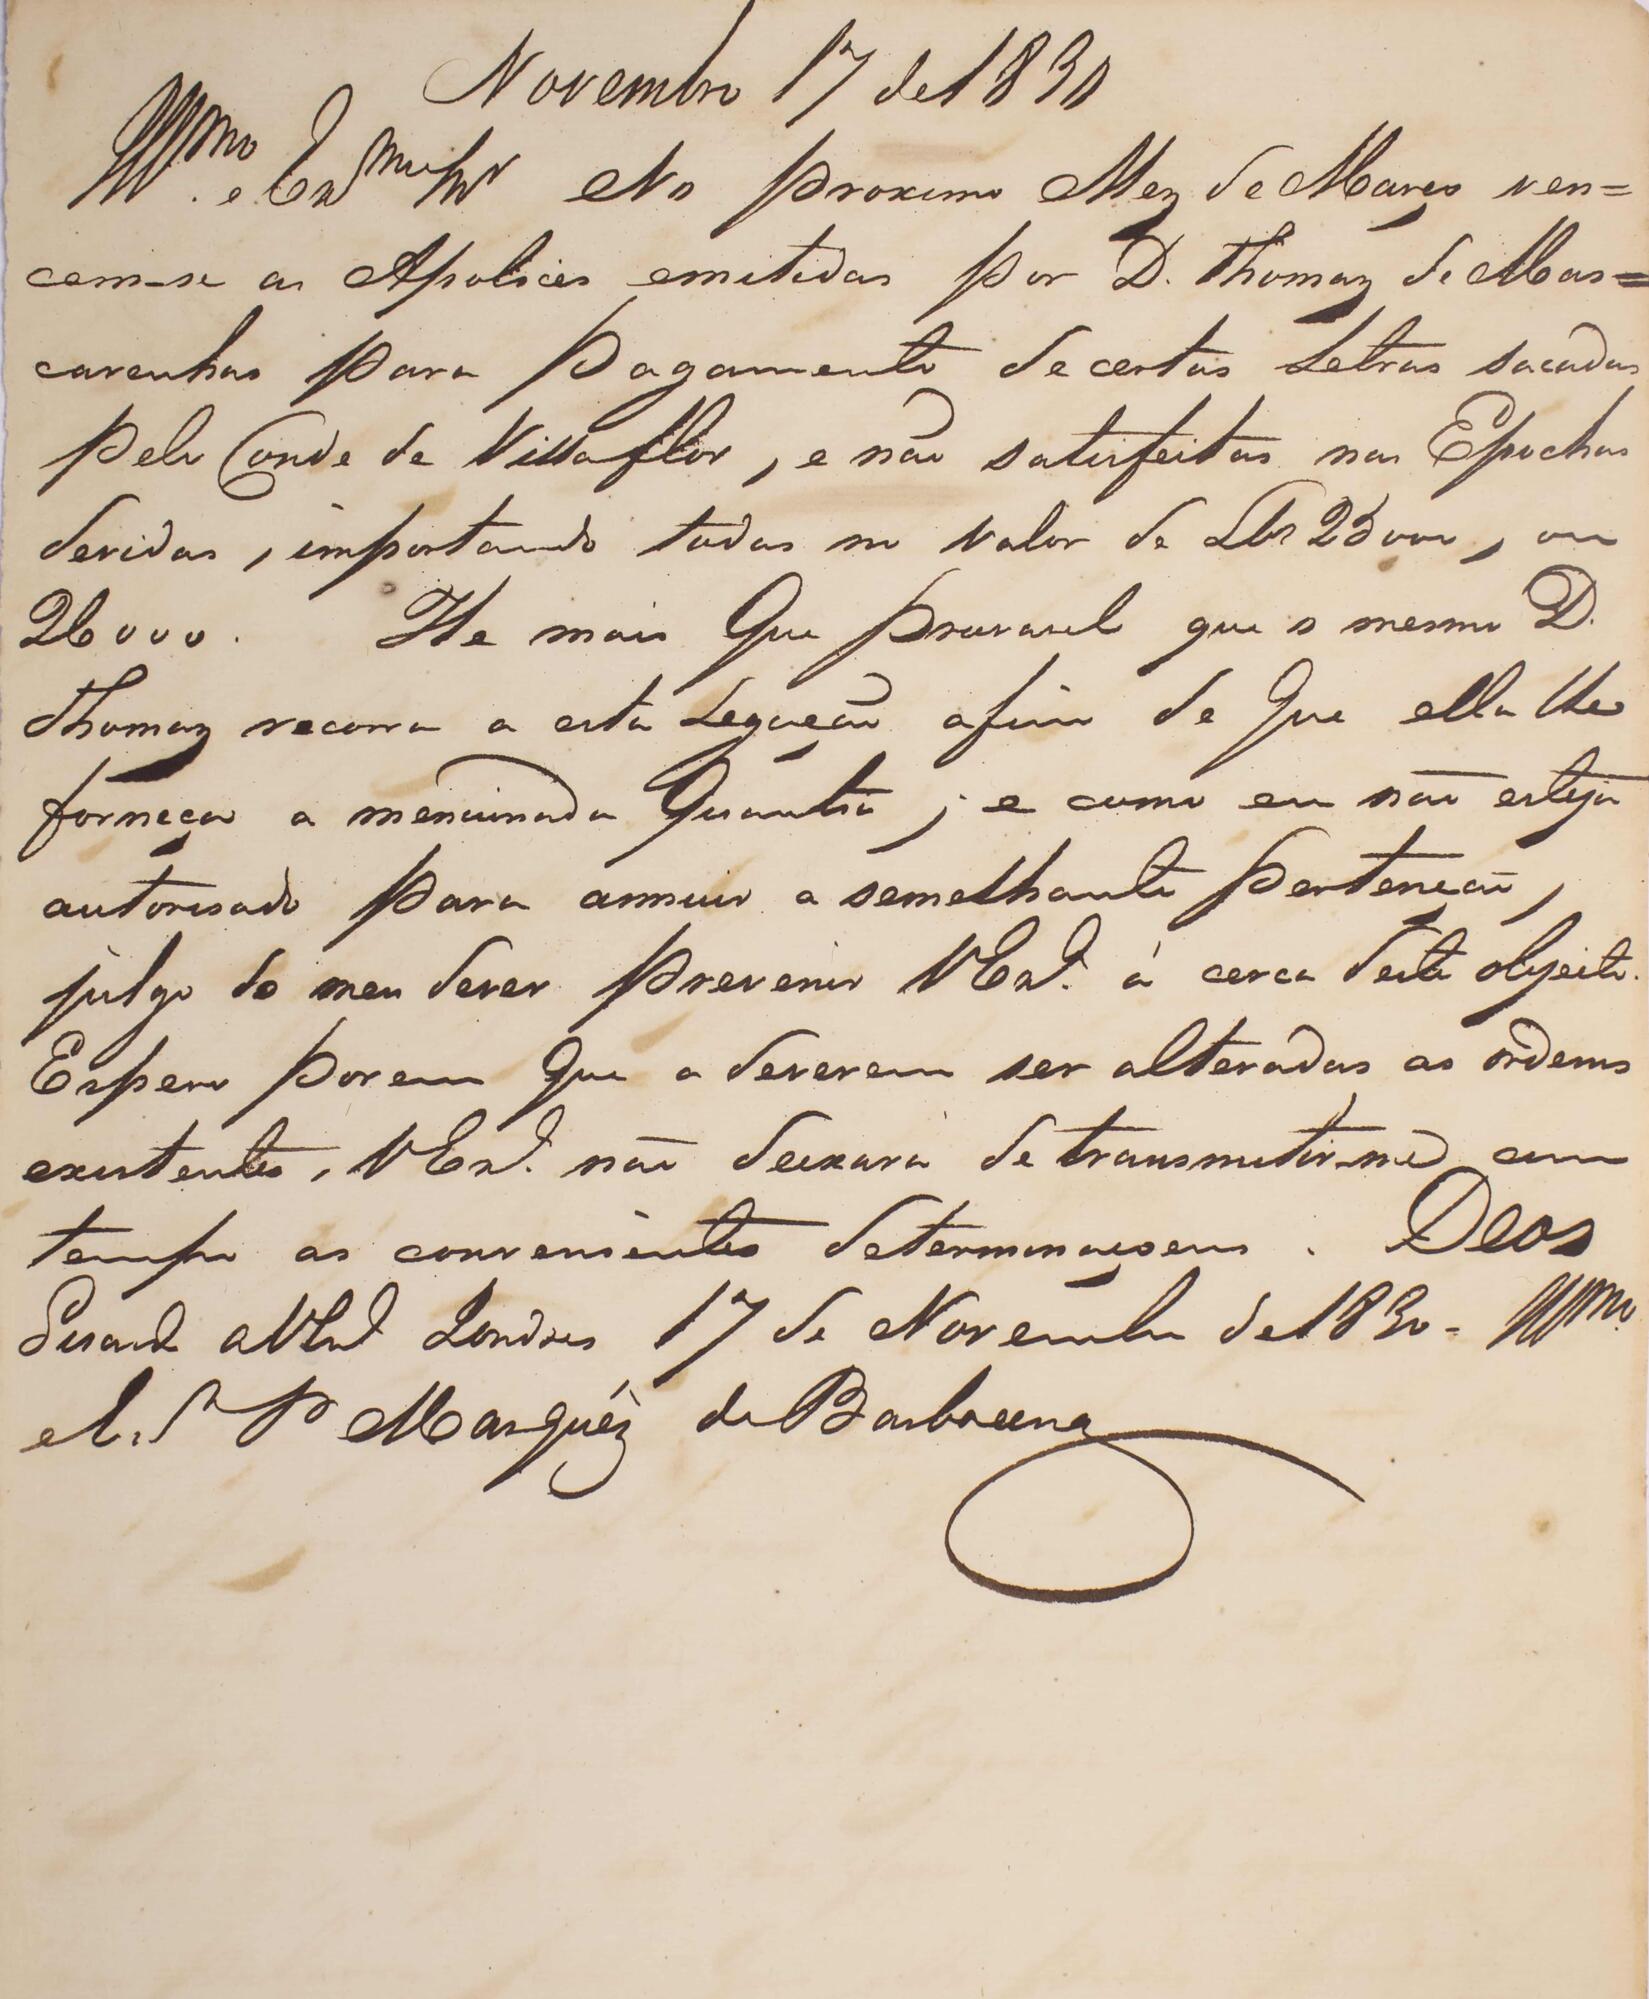 Novembro 17 de 1830
Illmo. e Exmo Snr No proximo Mez de Março ven=
cem-se as Apolices emitidas por D. Thomaz de Mas=
carenhas para pagamento de certas Letras sacadas
pelo Conde de Villaflor, e não satisfeitas nas Epochas
devidas, importando todas no valor de Lbs 25000, ou
26000. He mais que provavel que o mesmo D.
Thomaz recorra a esta Legação afim de que ella lhe
forneça a mencionada quantia; e como eu não esteja
autorisado para annuir a semelhante pertenção,
julgo do meu dever prevenir VExa. á cerca deste objecto.
Espero porem que a deverem ser alteradas as ordens
existentes, VExa. não deixará de transmitir-me em
tempo as convenientes determinaçoens. Deos
Guarde a VExa Londres 17 de Novembro de 1830 - Illmo
e Ex. Sr Marquéz de Barbacena